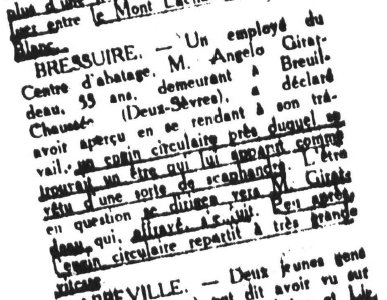 plus d'une
entre le Mont
Blanc.
BRESSUIRE. — Un employé du
Centre d'abatage, M. Angelo Girar-
deau, 55 ans, demeurant à Breuil-
Chaussée (Deux-Sèvres), a déclaré
avoir aperçu en se rendant à son tra-
vail, un engin circulaire près duquel se
trouvait un être qui lui apparut comme
vêtu d'une sorte de scaphandre. L'être
en question se dirigea vers M. Girar-
deau qui, effrayé, s'enfuit. Peu après,
l'engin circulaire repartit à très grande
vitesse.
Deux jeunes gens
dit avoir vu sur